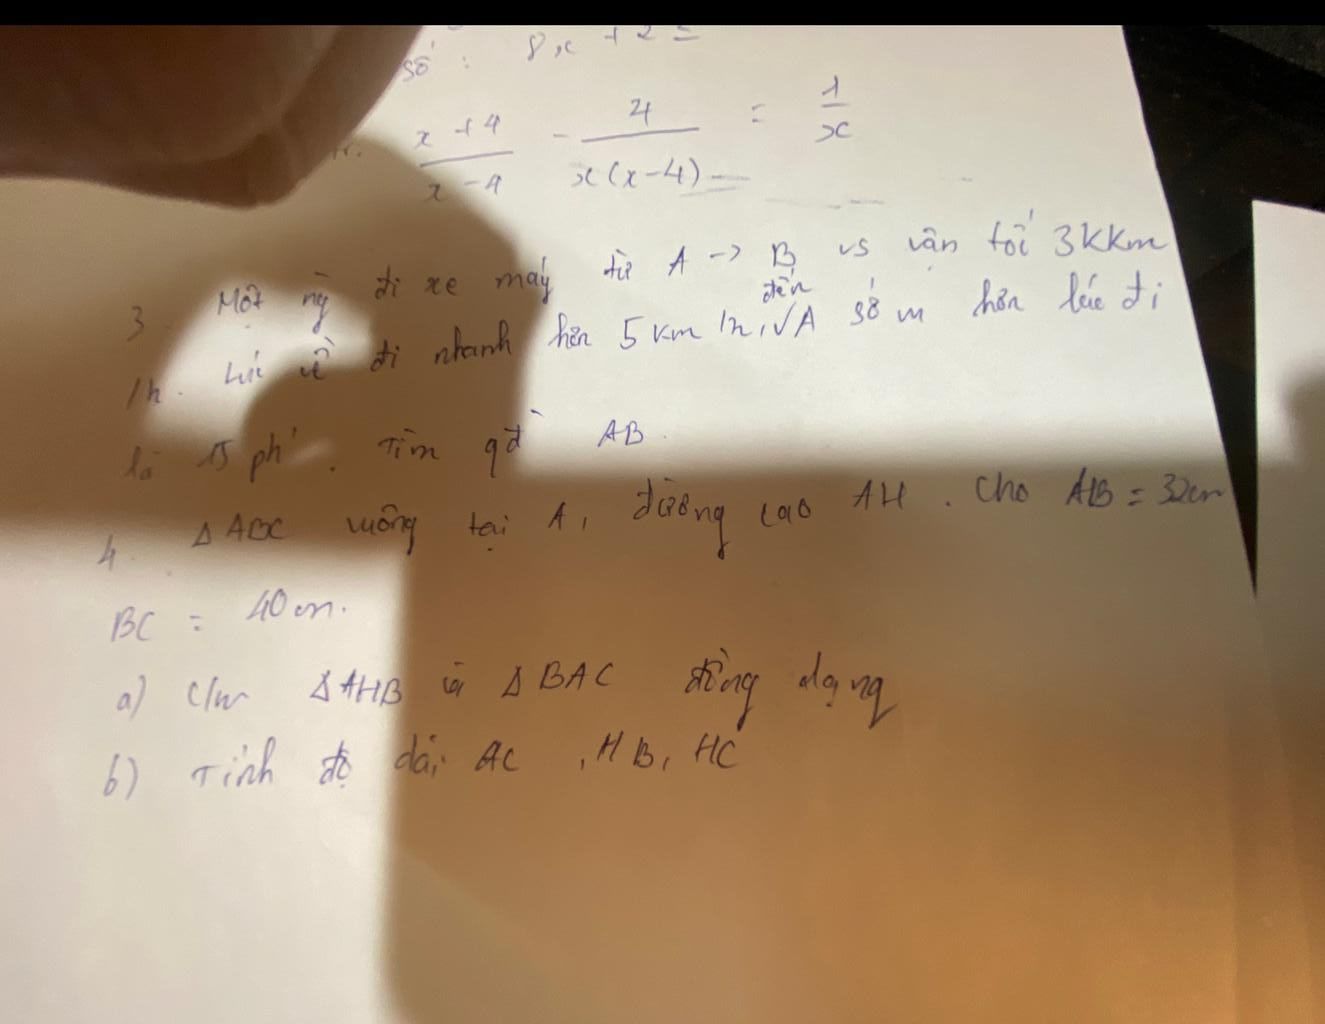 số : 8x + 2 =
x + 4 / x - 4 - 4 / x(x-4) = 1 / x
3. Một ng̀ đi xe máy từ A -> B vs vận tối 3kkm
/h. Lúc về đi nhanh hơn 5 km /h, √A đến sớm hơn lúc đi
là 15 ph'. Tìm qđ̀ AB.
4. Δ ABC vuông tại A, đường cao AH. Cho AB = 32cm
BC = 40cm.
a) c/m Δ AHB và Δ BAC đồng dạng
b) Tính độ dài AC, HB, HC